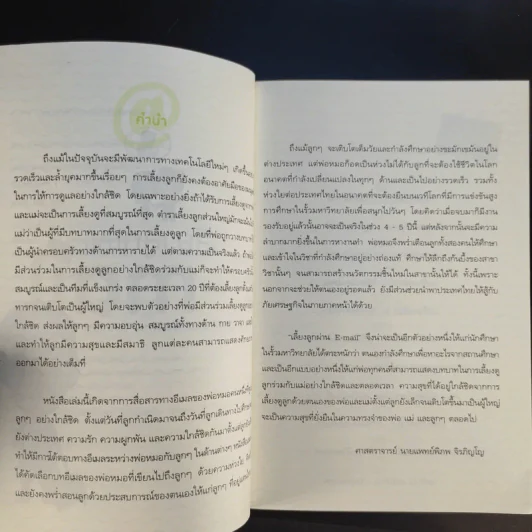 คำนำ
ถึงแม้ในปัจจุบันจะมีพัฒนาการทางเทคโนโลยีใหม่ๆ เกิดขึ้น
รวดเร็วและล้ำยุคมากขึ้นเรื่อยๆ การเลี้ยงลูกก็ยังคงต้องอาศัยมือของ
ในการให้การดูแลอย่างใกล้ชิด โดยเฉพาะอย่างยิ่งถ้าได้รับการเลี้ยงดูจาก
และแม่จะเป็นการเลี้ยงดูที่สมบูรณ์ที่สุด ตำราเลี้ยงลูกส่วนใหญ่มักจะเน้น
แม่ว่าเป็นผู้ที่มีบทบาทมากที่สุดในการเลี้ยงดูลูก โดยที่พ่อถูกวาง
เป็นผู้นำครอบครัวทางด้านการหารายได้ แต่ตามความเป็นจริงแล้ว
มีส่วนร่วมในการเลี้ยงลูกอย่างใกล้ชิดร่วมกับแม่ก็จะทำให้ครอบครัว
สมบูรณ์และเป็นทีมที่แข็งแกร่ง ตลอดระยะเวลา 20 ปีที่ต้องเลี้ยงลูก
ทารกจนเติบโตเป็นผู้ใหญ่ โดยจะพบตัวอย่างที่พ่อมีส่วนร่วมเลี้ยงลูก
ใกล้ชิด ส่งผลให้ลูกๆ มีความอบอุ่น สมบูรณ์ทั้งทางด้าน กาย วาจา
และทำให้ลูกมีความสุขและมีสมาธิ ลูกแต่ละคนสามารถแสดงศักยภาพ
ออกมาได้อย่างเต็มที่
หนังสือเล่มนี้เกิดจากการสื่อสารทางอีเมลของพ่อหมอคนหนึ่ง
ลูกๆ อย่างใกล้ชิด ตั้งแต่วันที่ลูกกำเนิดมาจนถึงวันที่ลูกเดินทางไปศึกษา
ยังต่างประเทศ ความรัก ความผูกพัน และความใกล้ชิดกันมาตั้งแต่
ทำให้มีการโต้ตอบทางอีเมลระหว่างพ่อหมอกับลูกๆ ในด้านต่างๆ
ได้คัดเลือกบทอีเมลของพ่อหมอที่เขียนไปถึงลูกๆ ด้วยความห่วงใย
และยังคงพร่ำสอนลูกด้วยประสบการณ์ของตนเองให้แก่ลูกๆ
ถึงแม้ลูกๆ จะเติบโตเต็มวัยและกำลังศึกษาอย่างขะมักเขม้นอยู่ใน
ต่างประเทศ แต่พ่อหมอก็อดเป็นห่วงไม่ได้กับลูกที่จะต้องใช้ชีวิตในโลก
อนาคตที่กำลังเปลี่ยนแปลงในทุกๆ ด้านและเป็นไปอย่างรวดเร็ว รวมทั้ง
ห่วงใยต่อประเทศไทยในอนาคตที่จะต้องยืนบนเวทีโลกที่มีการแข่งขันสูง
การศึกษาในรั้วมหาวิทยาลัยเพื่อจบไปวันๆ โดยคิดว่าเมื่อจบมาก็มีงาน
รองรับอยู่แล้วนั้นอาจจะเป็นจริงในช่วง 4 - 5 ปีนี้ แต่หลังจากนั้นจะมีความ
ลำบากมากยิ่งขึ้นในการหางานทำ พ่อหมอจึงพร่ำเตือนลูกทั้งสองคนให้ศึกษา
และเข้าใจในวิชาที่กำลังศึกษาอยู่อย่างถ่องแท้ ศึกษาให้ลึกถึงก้นบึ้งของสาขา
วิชานั้นๆ จนสามารถสร้างนวัตกรรมขึ้นใหม่ในสาขานั้นให้ได้ ทั้งนี้เพราะ
นอกจากจะช่วยให้ตนเองอยู่รอดแล้ว ยังมีส่วนช่วยนำพาประเทศไทยให้สู้กับ
ภัยเศรษฐกิจในภายภาคหน้าได้ด้วย
"เลี้ยงลูกผ่าน E-mail" จึงน่าจะเป็นอีกตัวอย่างหนึ่งให้แก่นักศึกษา
ในรั้วมหาวิทยาลัยได้ตระหนักว่า ตนเองกำลังศึกษาเพื่อหาอะไรจากสถานศึกษา
และเป็นอีกแบบอย่างหนึ่งให้แก่พ่อทุกคนที่สามารถแสดงบทบาทในการเลี้ยงดู
ลูกร่วมกับแม่อย่างใกล้ชิดและตลอดเวลา ความสุขที่ได้อยู่ใกล้ชิดจากการ
เลี้ยงดูลูกด้วยตนเองของพ่อและแม่ตั้งแต่ลูกยังเล็กจนเติบโตขึ้นมาเป็นผู้ใหญ่
จะเป็นความสุขที่ยั่งยืนในความทรงจำของพ่อ แม่ และลูกๆ ตลอดไป
ศาสตราจารย์ นายแพทย์พิภพ จิรภิญโญ